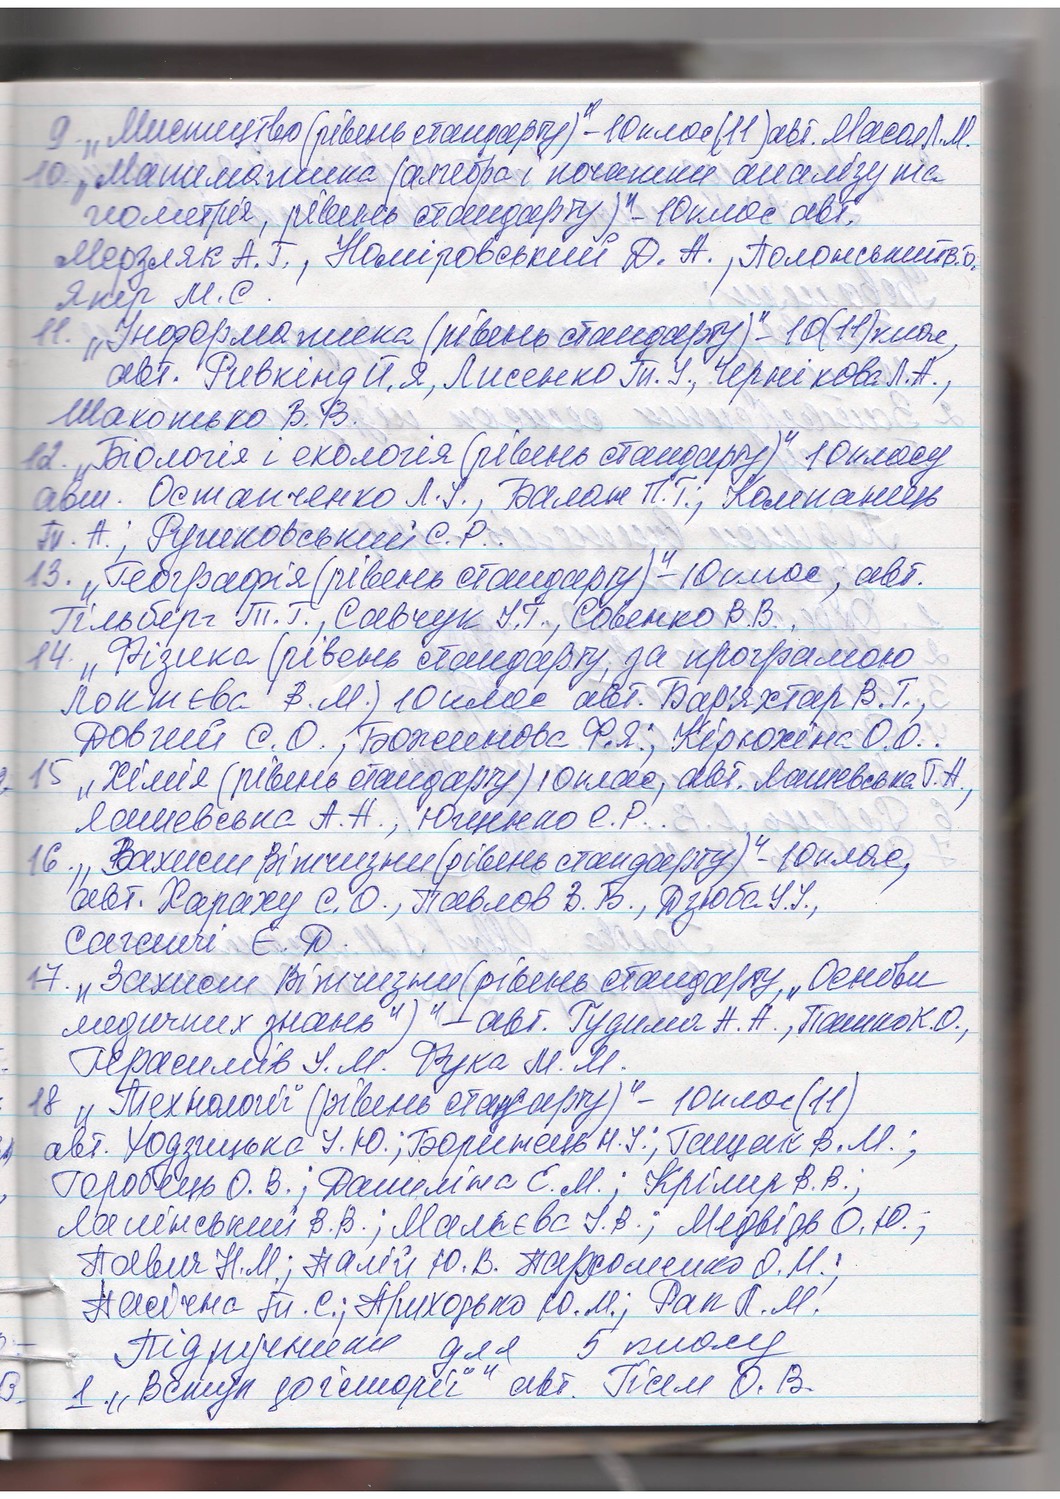 9. „Мистецтво (рівень стандарту)" – 10 клас (11) авт. Масол Л.М.
10. „Математика (алгебра і початки аналізу та
геометрія, рівень стандарту)" – 10 клас авт.
Мерзляк А.Г., Номіровський Д. А., Полонський В.Б.
Якір М.С.
11. „Інформатика (рівень стандарту)" – 10 (11) клас,
авт. Ривкінд Й.Я, Лисенко Т.І., Чернікова Л.А.,
Шакотько В.В.
12. „Біологія і екологія (рівень стандарту)" 10 класу
авт. Остапченко Л.І., Балан П.Г.; Компанець
Т. А.; Рушковський С.Р..
13. „Географія (рівень стандарту)" – 10 клас, авт.
Гільберг Т.Г., Савчук І.Г., Совенко В.В.,
14. „Фізика (рівень стандарту, за програмою
Локтєва В.М.) 10 клас авт. Бар'яхтар В.Г.,
Довгий С.О., Божинова Ф.Я.; Кірюхіна О.О..
15 „Хімія (рівень стандарту) 10 клас, авт. Лашевська Г.А,
Лашевська А.А., Ющенко С.Р..
16. „Захист Вітчизни (рівень стандарту)" – 10 клас,
авт. Хараху С.О., Павлов В.В., Дзюба І.І.,
Саганчі Є. Д.
17. „Захист Вітчизни (рівень стандарту, „Основи
медичних знань")" – авт. Гудима А.А., Пашко К.О.,
Герасимів І.М. Фука М.М.
18 „Технології (рівень стандарту)" – 10 клас (11)
авт. Ходзицька І.Ю.; Боринець Н.І.; Гащак В.М.;
Горобець О.В.; Даниліна Є.М.; Крімер В.В.;
Лапінський В.В.; Малкєва І.В.; Медвідь О.Ю.;
Павич Н.М; Палій Ю.В. Пархоменко О.М.;
Пасічна Т.С.; Приходько Ю.М.; Рак Л.М.
Підручники для 5 класу
1. „Вступ до історії" авт. Гісем О.В.